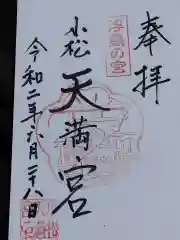 奉拝
小松天満宮
令和二年六月二十八日